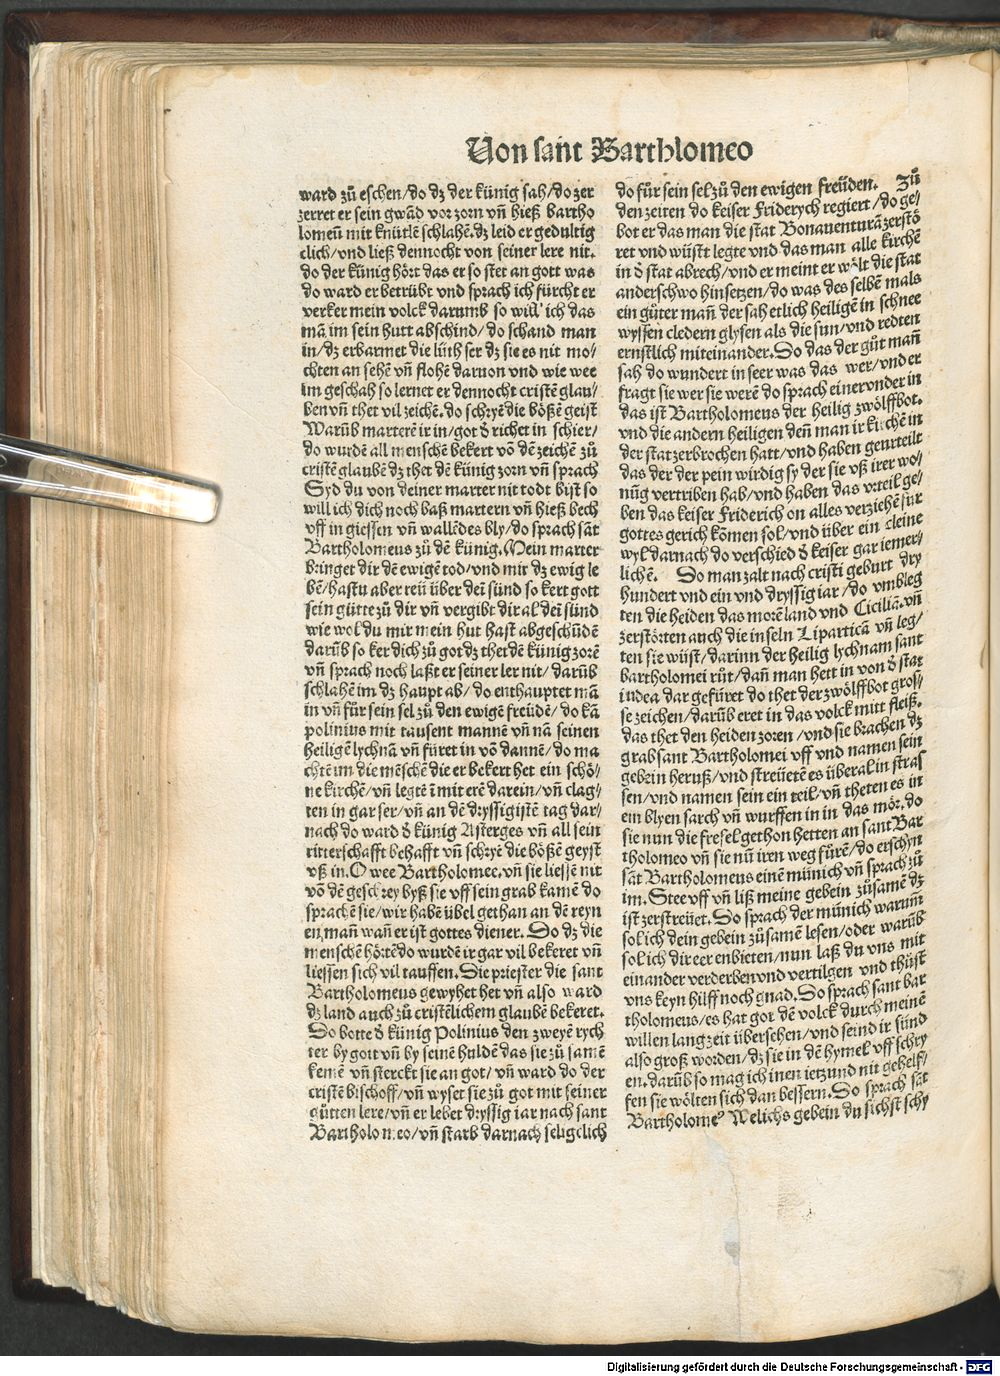 Von sant Bartholomeo
ward zů eschen/do dz der künig sah/do zer
zerret er sein gwãd vor zorn vñ hieß bartho
lomeũ mit knütlẽ schlahẽ.dz leid er gedultig
clich/vnd ließ dennocht von seiner lere nit.
do der künig hört das er so stet an gott was
do ward er betrübt vnd sprach ich fürcht er
verker mein volck darumb so will ich das
mã im sein hutt abschind/do schand man
in/dz erbarmet die lüth ser dz sie es nit mo/
chten an sehẽ vñ flohẽ daruon vnd wie wee
im geschah so lernet er dennocht cristẽ glau/
ben vñ thet vil zeichẽ.do schryẽ die bößẽ geist
Warũb marterẽ ir in/got ð richet in schier/
do wurdẽ all menschẽ bekert võ dẽ zeichẽ zů
cristẽ glaubẽ dz thet dẽ künig zorn vñ sprach
Syd du von deiner marter nit todt bist so
will ich dich noch baß martern vñ hieß bech
vff in giessen vñ wallẽdes bly/do sprach sãt
Bartholomeus zů dẽ künig.Mein marter
bringet dir dẽ ewigẽ tod/vnd mir dz ewig le
bẽ/hastu aber reü über dei sünd so kert gott
sein gütte zů dir vñ vergibt dir al dei sünd
wie wol du mir mein hut hast abgeschũdẽ
darũb so ker dich zů got dz thet dẽ künig zorẽ
vñ sprach noch laßt er seiner ler nit/darũb
schlahẽ im dz haupt ab/do enthauptet mã
in vñ für sein sel zů den ewigẽ freüdẽ/do kã
polinius mit tausent mannẽ vñ nã seinen
heiligẽ lychnã vñ füret in võ dannẽ/do ma
chtẽ im die mẽschẽ die er bekert het ein schö/
ne kirchẽ/vñ legtẽ ĩ mit erẽ darein/vñ clag/
ten in gar ser/vñ an dẽ dryssigistẽ tag dar/
nach do ward ð künig Asterges vñ all sein
ritterschafft behafft vñ schryẽ die bößẽ geyst
vß in.O wee Bartholomee.vñ sie liessẽ nit
võ dẽ geschrey byß sie vff sein grab kamẽ do
sprachẽ sie/wir habẽ übel gethan an dẽ reyn
en mañ wañ er ist gottes diener. Do dz die
menschẽ hörtẽ do wurdẽ ir gar vil bekeret vñ
liessen sich vil tauffen.Die priester die sant
Bartholomeus gewyhet het vñ also ward
dz land auch zů cristẽlichem glaubẽ bekeret.
Do botte ð künig Polinius den zweyẽ rych
ter by gott vñ by seinẽ huldẽ das sie zů samẽ
kemẽ vñ sterckt sie an got/vñ ward do der
cristẽ bischoff/vñ wyset sie zů got mit seiner
gůtten lere/vñ er lebet dryssig iar nach sant
Bartholomeo/vñ starb darnach seligclich
do für sein sel zů den ewigen freüden. Zů
den zeiten do keiser Friderych regiert/do ge/
bot er das man die stat Bonauenturã zerstö
ret vnd wüst legte vnd das man alle kirchẽ
in ð stat abrech/vnd er meint er wölt die stat
anderschwo hinsetzen/do was des selbẽ mals
ein gůter mañ der sah etlich heiligẽ in schnee
wyssen cledern glysen als die sun/vnd redten
ernstlich miteinander.Do das der gůt mañ
sah do wundert in seer was das wer/vnd er
fragt sie wer sie werẽ do sprach einer vnder in
das ist Bartholomeus der heilig zwölffbot.
vnd die andern heiligen deñ man ir kirchẽ in
der stat zerbrochen hatt/vnd haben geurteilt
das der der pein wirdig sy der sie vß irer wo/
nũg vertriben hab/vnd haben das vrteil ge/
ben das keiser Friderich on alles verziehẽ für
gottes gerich kõmen sol/vnd über ein cleine
wyl darnach do verschied ð keiser gar iemer/
lichẽ. Do man zalt nach cristi geburt dry
hundert vnd ein vnd dryssig iar/do vmbleg
ten die heiden das morẽ land vnd Ciciliã.vñ
zerstörten auch die inseln Liparticã vñ leg/
ten sie wüst/darinn der heilig lychnam sant
bartholomei růt/dañ man hett in von ð stat
indea dar gefüret do thet der zwölffbot gros/
se zeichen/darũb eret in das volck mitt fleiß.
das thet den heiden zoren/vnd sie brachen dz
grab sant Bartholomei vff vnd namen sein
gebein heruß/vnd streüetẽ es überal in stras
sen/vnd namen sein ein teil/vñ theten es in
ein blyen sarch vñ wurffen in in das mör.do
sie nun die fresel gethon hetten an sant Bar
tholomeo vñ sie nũ iren weg fürẽ/do erschyn
sãt Bartholomeus einẽ münich vñ sprach zů
im.Stee vff vñ liß meine gebein zůsamẽ dz
ist zerstreüet.Do sprach der münich warum̃
sol ich dein gebein zůsamẽ lesen/oder warũb
sol ich dir eer enbieten/nun laß du vns mit
einander verderben vnd vertilgen vnd thüst
vns keyn hilff noch gnad.Do sprach sant bar
tholomeus/es hat got dẽ volck durch meinẽ
willen lang zeit übersehen/vnd seind ir sünd
also groß worden/dz sie in dẽ hymel vff schry
en.darũb so mag ich inen ietzund nit gehelf/
fen sie wölten sich dan bessern.Do sprach sãt
Bartholomeꝰ Welichs gebein du sichst schy
Digitalisierung gefördert durch die Deutsche Forschungsgemeinschaft - DFG